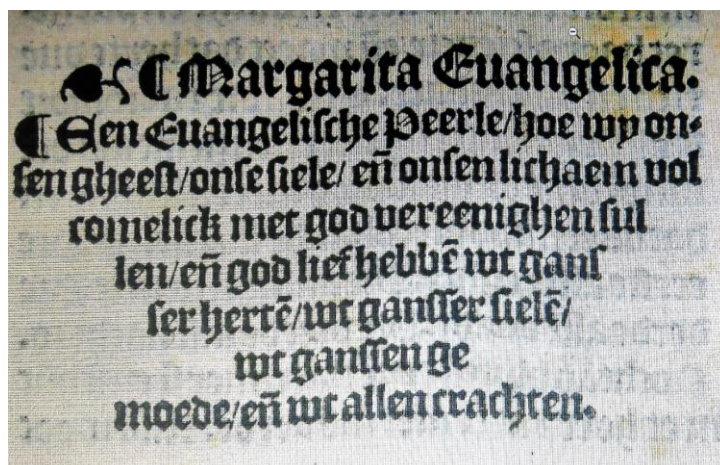 ❧ ¶ Margarita Euangelica.
¶ Een Euangelische Peerle/hoe wy on⸗
sen gheest/onse siele/ eñ onsen lichaem vol
comelick met god vereenighen sul
len/eñ god lief hebbẽ wt gans
ser hertẽ/wt gansser sielẽ/
wt ganssen ge
moede/eñ wt allen crachten.